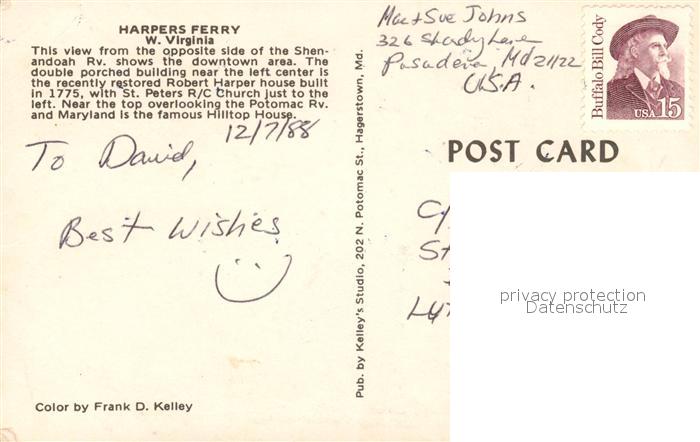 HARPERS FERRY
W. Virginia
This view from the opposite side of the Shen-
andoah Rv. shows the downtown area. The
double porched building near the left center is
the recently restored Robert Harper house built
in 1775, with St. Peters R/C Church just to the
left. Near the top overlooking the Potomac Rv.
and Maryland is the famous Hilltop House.
12/7/88
To David,
Best Wishes
Color by Frank D. Kelley
Pub. by Kelley's Studio, 202 N. Potomac St., Hagerstown, Md.
Mac + Sue Johns
326 Shady Lane
Pasadena, Md 21122
U.S.A.
Buffalo Bill Cody
USA 15
POST CARD
C/
St
Lyt
privacy protection
Datenschutz